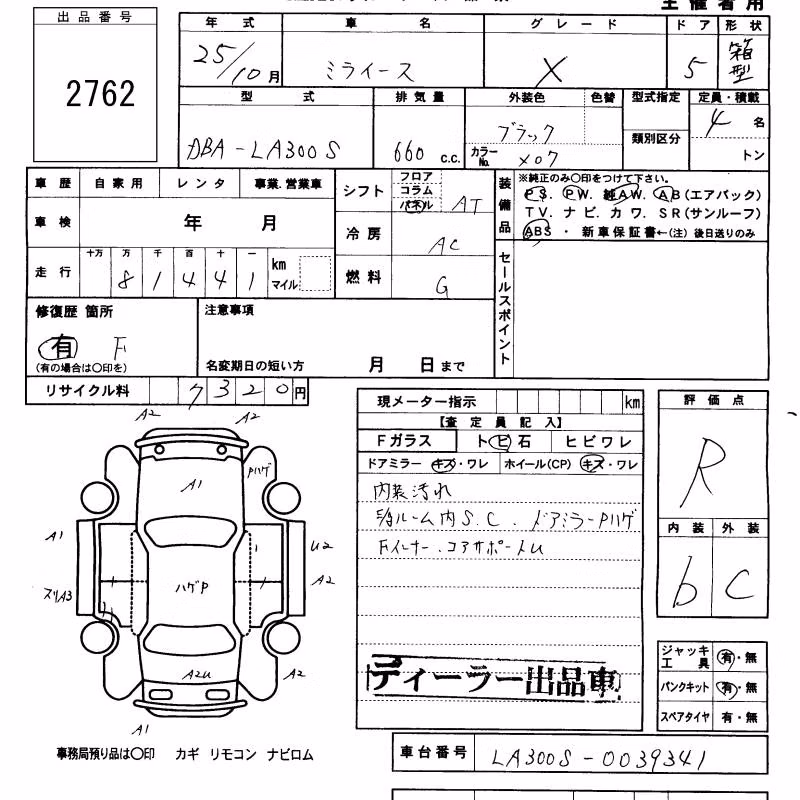 主催者用
出品番号
2762
年式 車名 グレード ドア 形状
25/10月 ミライース X 5 箱型
型式 排気量 外装色 色替 型式指定 定員・積載
類別区分
DBA-LA300S 660 c.c. ブラック カラーNo. X07 4名
トン
車歴 自家用 レンタ 事業.営業車
車検 年 月
走行 十万 万 千 百 十 一
8 1 4 4 1 km マイル
シフト フロア コラム パネル AT
冷房 AC
燃料 G
装備品
※純正のみ○印をつけて下さい。
PS. PW. 純AW. AB(エアバック)
TV. ナビ. カワ. SR(サンルーフ)
ABS ・ 新車保証書←(注) 後日送りのみ
セールスポイント
修復歴 箇所
有 F
(有の場合は○印を)
注意事項
名変期日の短い方 月 日まで
リサイクル料 7320円
現メーター指示 km
【査定員記入】
Fガラス トビ石 ヒビワレ
ドアミラー キズ・ワレ ホイール(CP) キズ・ワレ
内装汚れ
ルーム内S.C. ドアミラーPハゲ
Fインナー.コアサポートU
ディーラー出品車
評価点
R
内装 外装
b C
ジャッキ工具 有・無
パンクキット 有・無
スペアタイヤ 有・無
A2 A2
A1 Pハゲ
A1 U2
ハゲP A2
スリA3
A2U A2
A1
事務局預り品は○印 カギ リモコン ナビロム
車台番号 LA300S-0039341